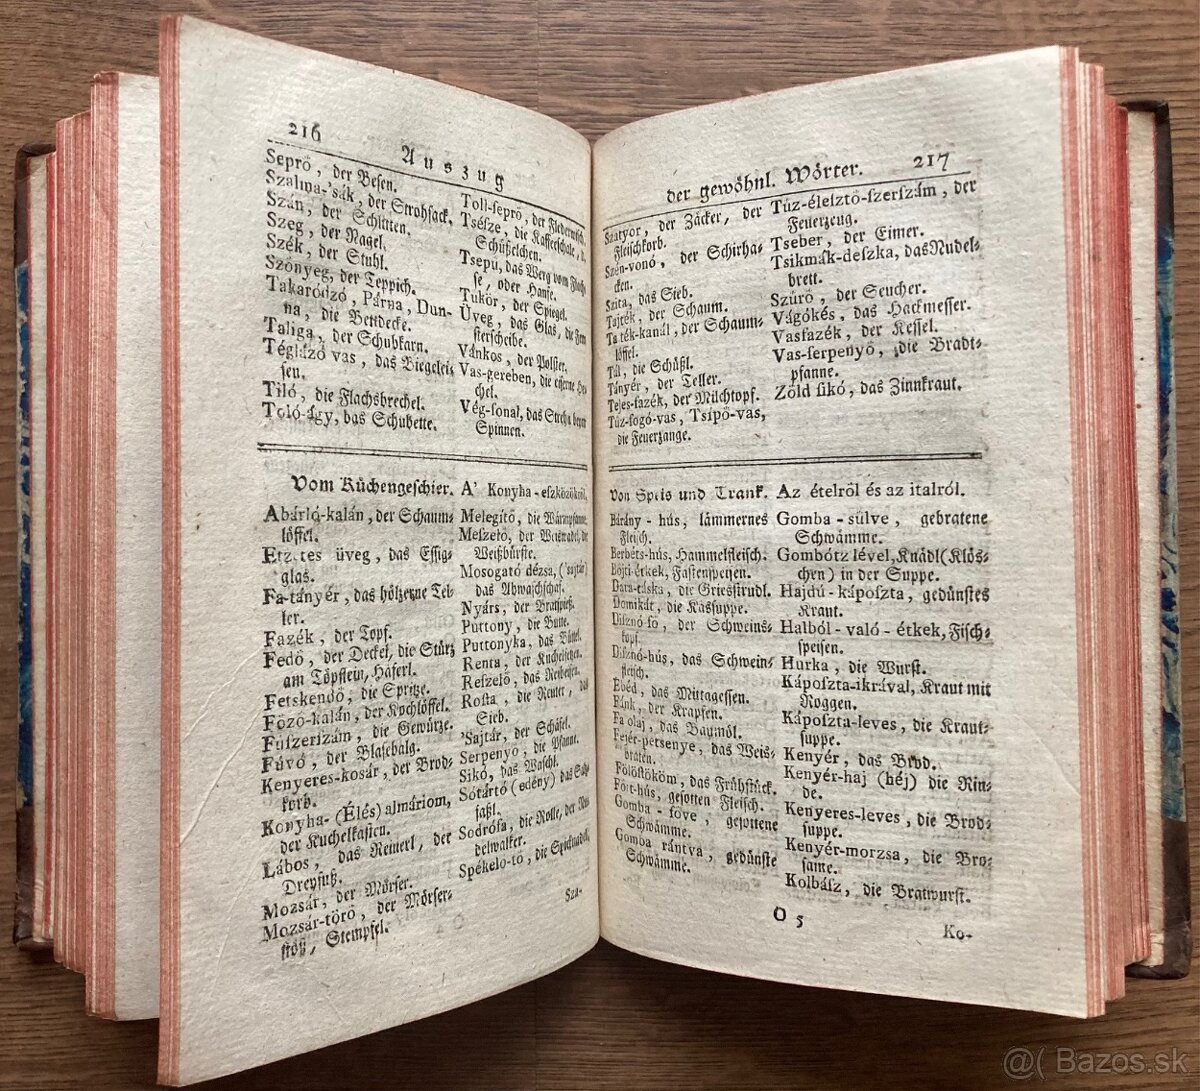 216
Auszug
Seprő, der Besen.
Szalma-'sák, der Strohsack.
Szán, der Schlitten.
Szeg, der Nagel.
Szék, der Stuhl.
Szőnyeg, der Teppich.
Takaródzó, Párna, Dun-
na, die Bettdecke.
Taliga, der Schubkarn.
Téglázó vas, das Biegelei-
sen.
Tiló, die Flachsbrechel.
Toló-ágy, das Schubette.
Toll-seprő, der Flederwisch.
Tsésze, die Kaffeeschale,
Schüßelchen.
Tsepü, das Werg vom Flach-
se, oder Hanfe.
Tukör, der Spiegel.
Üveg, das Glas, die Fen-
sterscheibe.
Vánkos, der Polster.
Vas-gereben, die eiserne He-
chel.
Vég-fonal, das Strehn
Spinnen.
Vom Küchengeschier.
Abárló-kalán, der Schaum-
löffel.
Etzetes üveg, das Essig-
glas.
Fa-tányér, das hölzerne Tel-
ler.
Fazék, der Topf.
Fedő, der Deckel, die Stürz
am Töpflein, Häferl.
Fetskendő, die Spritze.
Főző-kalán, der Kochlöffel.
Fűszerízám, die Gewürze.
Fúvó, der Blasebalg.
Kenyeres-kosár, der Brod-
korb.
Konyha- (Élés) almáriom,
der Kuchelkasten.
Lábos, das Remerl, der
Dreyfuß.
Mozsár, der Mörser.
Mozsár-törő, der Mörser-
stöß, Stempfel.
A' Konyha-eszközökről.
Melegítő, die Wärmpfanne.
Meszelő, der Weiswadel, die
Weißbürste.
Mosogató dézsa, ('sajtár)
das Abwaschschaf.
Nyárs, der Bratspieß.
Puttony, die Butte.
Puttonyka, das Büttel.
Renta, der Kuchelfetzen.
Reszelő, das Reibeisen.
Rosta, die Reuter, das
Sieb.
'Sajtár, der Schäfel.
Serpenyő, die Pfanne.
Sikó, das Waschl.
Sótártó (edény) das Salz-
faßl.
Sodrófa, die Rolle, der Nu-
delwalker.
Spékelo-tő, die Spicknadel.
Sza-
der gewöhnl. Wörter.
217
Szatyor, der Zäcker, der
Fleischkorb.
Szén-vonó, der Schirha-
cken.
Szita, das Sieb.
Tajték, der Schaum.
Tajték-kanál, der Schaum-
löffel.
Tál, die Schüßl.
Tányér, der Teller.
Tejes-fazék, der Milchtopf.
Tűz-fogó-vas, Tsípő-vas,
die Feuerzange.
Tűz-élesztő-szerszám, der
Feuerzeug.
Tseber, der Eimer.
Tsikmák-deszka, das Nudel-
brett.
Szűrő, der Seucher.
Vágókés, das Hackmesser.
Vasfazék, der Kessel.
Vas-serpenyő, die Bradt-
pfanne.
Zöld sikó, das Zinnkraut.
Von Speis und Trank.
Bárány-hús, lämmernes
Fleisch.
Berbéts-hús, Hammelfleisch.
Bőjti-étkek, Fastenspeisen.
Dara-táska, die Griesstrudl.
Domikát, die Kässuppe.
Disznó-fő, der Schweins-
kopf.
Disznó-hús, das Schwein-
fleisch.
Ebéd, das Mittagessen.
Fánk, der Krapfen.
Fa olaj, das Baumöl.
Fejér-petsenye, das Weis-
braten.
Fölöstököm, das Frühstück.
Főtt-hús, gesotten Fleisch.
Gomba-főve, gesottene
Schwämme.
Gomba rántva, gedünste
Schwämme.
Az ételről és az italról.
Gomba-sülve, gebratene
Schwämme.
Gombótz lével, Knädl (Klös-
chen) in der Suppe.
Hajdú-káposzta, gedünstes
Kraut.
Halból-való-étkek, Fisch-
speisen.
Hurka, die Wurst.
Káposzta-ikrával, Kraut mit
Roggen.
Káposzta-leves, die Kraut-
suppe.
Kenyér, das Brod.
Kenyér-haj (héj) die Rin-
de.
Kenyeres-leves, die Brod-
suppe.
Kenyér-morzsa, die Bro-
same.
Kolbász, die Bratwurst.
O 5
Ko-
@( Bazos.sk